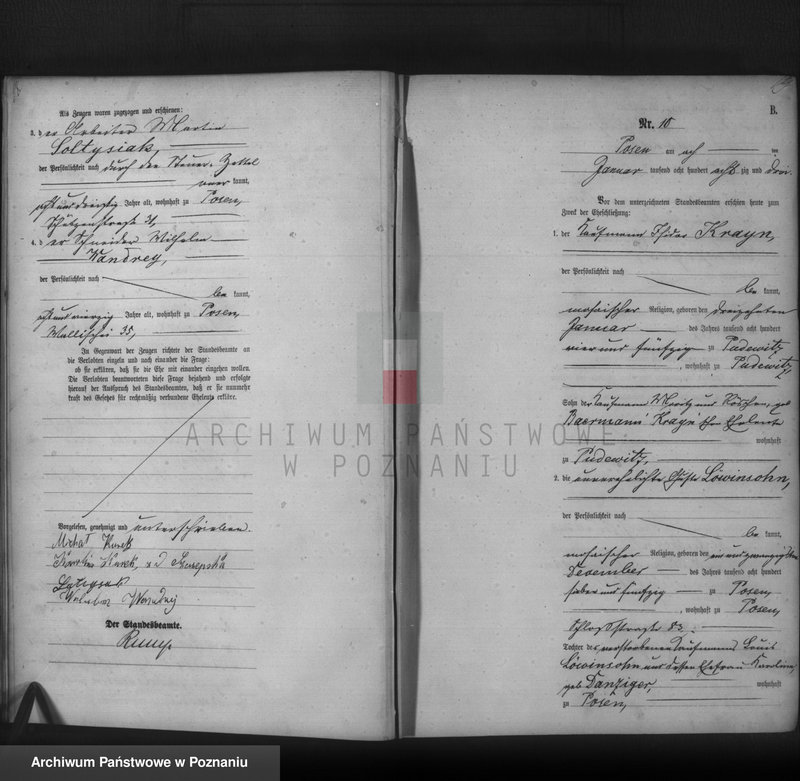 Als Zeugen waren zugezogen und erschienen:
3. der Arbeiter Martin
Soltysiak,
der Persönlichkeit nach durch den Steuer-Zettel
aner kannt,
acht und dreißig Jahre alt, wohnhaft zu Posen,
Schützenstraße 31,
4. der Schneider Wilhelm
Wandrey,
der Persönlichkeit nach
be kannt,
acht und vierzig Jahre alt, wohnhaft zu Posen,
Wallischei 35,
In Gegenwart der Zeugen richtete der Standesbeamte an
die Verlobten einzeln und nach einander die Frage:
ob sie erklären, daß sie die Ehe mit einander eingehen wollen.
Die Verlobten beantworteten diese Frage bejahend und erfolgte
hierauf der Ausspruch des Standesbeamten, daß er sie nunmehr
kraft des Gesetzes für rechtmäßig verbundene Eheleute erkläre.
Vorgelesen, genehmigt und unterschrieben.
Michał Kurek
Kurek,
Wilhelm Wandrej
Der Standesbeamte.
B.
Nr. 10
Posen am acht ten
Januar tausend acht hundert acht zig und drei.
Vor dem unterzeichneten Standesbeamten erschienen heute zum
Zweck der Eheschließung:
1. der Kaufmann Isidor Krayn,
der Persönlichkeit nach
be kannt,
mosaischer Religion, geboren den dreizehnten
Januar des Jahres tausend acht hundert
vier und fünfzig zu Pudewitz,
, wohnhaft zu Pudewitz,
Sohn der Kaufmann Moritz und Röschen, geb
Baermann Krayn'schen Eheleute
wohnhaft
zu Pudewitz,
2. die unverehelichte Guste Löwinsohn,
der Persönlichkeit nach
be kannt,
mosaischer Religion, geboren den ein und zwanzigsten
Dezember des Jahres tausend acht hundert
sieben und fünfzig zu Posen,
, wohnhaft zu Posen,
Schloßstraße 83.
Tochter des verstorbenen Kaufmanns Louis
Löwinsohn und dessen Ehefrau Karoline,
geb Danziger, wohnhaft
zu Posen,
ARCHIWUM PAŃSTWOWE
W POZNANIU
Archiwum Państwowe w Poznaniu